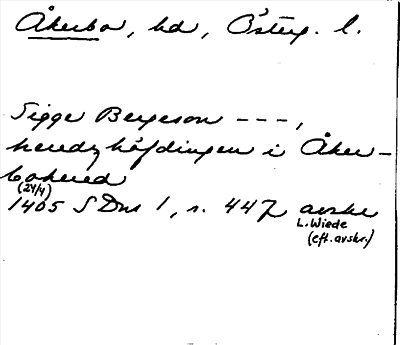 Åkerbo, hd, Österg. l.
Sigge Bergeson ---,
heredzhöfdingen i Åker-
bohered
(24/4)
1405 SDns 1, s. 447 avskr
L. Wiede
(eft. avskr.)